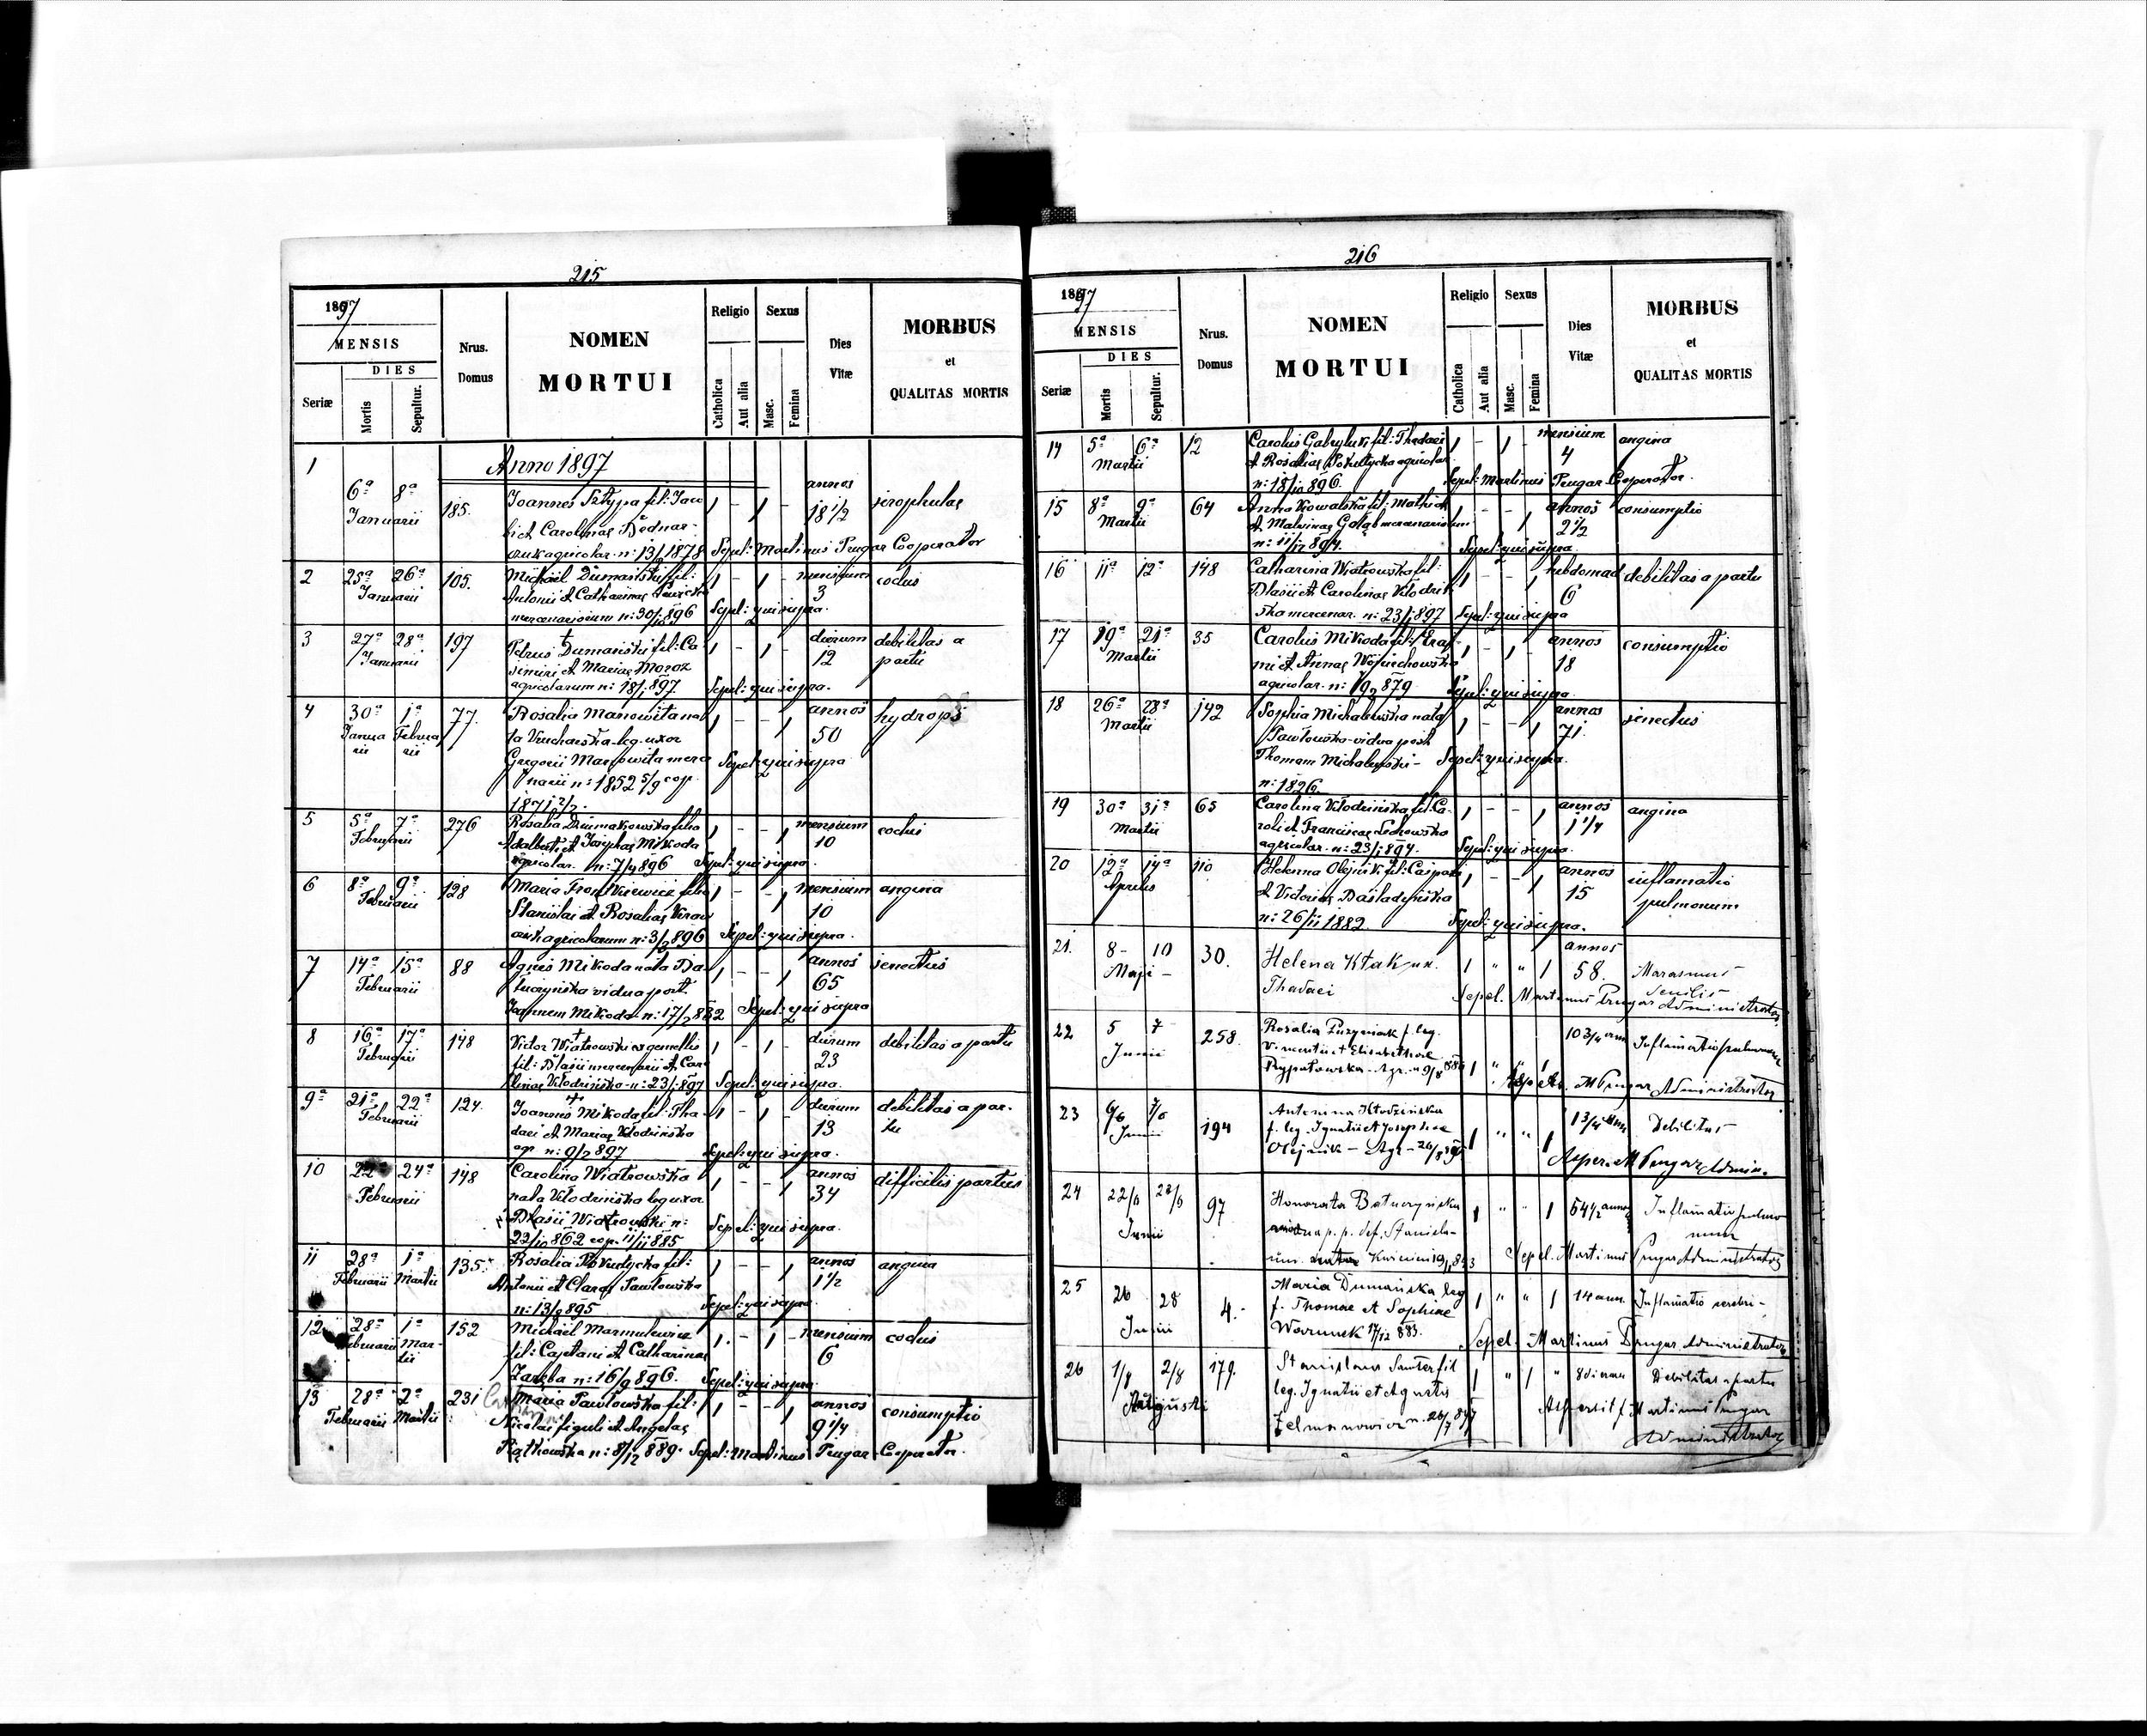 215
1897
MENSIS
DIES
Seriæ
Mortis
Sepultur.
Nrus.
Domus
NOMEN
MORTUI
Religio
Catholica
Aut alia
Sexus
Masc.
Femina
Dies
Vitæ
MORBUS
et
QUALITAS MORTIS
Anno 1897
1 6ª 8ª Januarii 185.
Joannes Sztypa fil: Jaco
bi et Carolinae Bednar-
agricolar. n: 13/2 1878
1 - 1 annos 18 1/2
Sepel: Martinus Prugar Cooperator
2 25ª 26ª Januarii 105.
Michaël Dumański fil:
Antonii et Catharinae
mercenariorum n: 896
1 - 1 - mensium 3 codus
Sepel: qui supra.
3 27ª 28ª Januarii 197
Petrus Dumański fil: Ca
simiri et Mariae Moroz
agricolarum n: 18/1 897.
1 - 1 - dierum 12 debilitas a partu
Sepel: qui supra.
4 30ª Januarii 1ª Februarii 77.
Rosalia Manowita na
ta leg. uxor
Gregorii Manowita merce
narii n: 1852 5/9 cop.
1871
1 - - 1 annos 50 hydrops
Sepel: qui supra
5 5ª 7ª Februarii 276
Rosalia filia
Adalberti et Josephae Mikoda
agricolar. n: 896
1 - - 1 mensium 10 codus
Sepel: qui supra.
6 8ª 9ª Februarii 128
Maria filia
Stanislai et Rosaliae
agricolarum n: 3/2 896
1 - - 1 mensium 10 angina
Sepel: qui supra.
7 14ª 15ª Februarii 88
Agnes Mikoda nata Ba-
turzyńska vidua post.
Joannem Mikoda n: 17/2 832
1 - - 1 annos 65 senectus
Sepel: qui supra
8 16ª 17ª Februarii 148
Victor Wiatrowski ex gemellis
fil: Blasii mercenarii et Caro
linae Kłodzińska n: 23/1 897
1 - 1 - dierum 23 debilitas a partu
Sepel: qui supra.
9ª 21ª 22ª Februarii 124.
Joannes Mikoda fil: Tha
daei et Mariae Kłodzińska
agr. n: 9/2 897
1 - 1 - dierum 13 debilitas a par-
tu
Sepel: qui supra.
10 22ª 24ª Februarii 148
Carolina Wiatrowska
nata Kłodzińska leg uxor
Blasii Wiatrowski n:
22/10 862 cop. 11/11 885
1 - - 1 annos 34 difficilis partus
Sepel: qui supra.
11 28ª Februarii 1ª Martii 135.
Rosalia Pokutycka fil:
Antonii et Clarae Pawłowska
n: 13/9 895
1 - - 1 annos 1 1/2 angina
Sepel: qui supra
12 28ª Februarii 1ª Martii 152
Michaël Marmulewicz
fil: Cajetani et Catharinae
Zaręba n: 16/9 896.
1 - 1 - mensium 6 codus
Sepel: qui supra
13 28ª Februarii 2ª Martii 231
Maria Pawłowska fil:
Nicolai figuli et Angelae
n: 8/12 889.
1 - - 1 annos 9 1/4 consumptio
Sepel: Martinus Prugar Cooperator.
216
1897
MENSIS
DIES
Seriæ
Mortis
Sepultur.
Nrus.
Domus
NOMEN
MORTUI
Religio
Catholica
Aut alia
Sexus
Masc.
Femina
Dies
Vitæ
MORBUS
et
QUALITAS MORTIS
14 5ª 6ª Martii 12
Carolus fil: Thadaei
et Rosaliae Pokutycka agricolar.
n: 18/10 896.
1 - 1 - mensium 4 angina
Sepel: Martinus Prugar Cooperator.
15 8ª 9ª Martii 64
Anna Kowalska fil: Mathiae
et Malvinae Gołąb mercenariorum
n: 11/12 894.
1 - - 1 annos 2 1/2 consumptio
Sepel: qui supra.
16 11ª 12ª 148
Catharina Wiatrowska fil:
Blasii et Carolinae Kłodziń
ska mercenar. n: 23/1 897
1 - - 1 hebdomad 6 debilitas a partu
Sepel: qui supra
17 19ª 21ª Martii 35
Carolus Mikoda fil: Eras
mi et Annae Wojciechowska
agricolar. n: 879
1 - 1 - annos 18 consumptio
Sepel: qui supra.
18 26ª 28ª Martii 142
Sophia Michalewska nata
Pawłowska vidua post
Thomam Michalewski -
n: 1826
1 - - 1 annos 71. senectus
Sepel: qui supra.
19 30ª 31ª Martii 65
Carolina Kłodzińska fil: Ca-
roli et Franciscae
agricolar. n: 23/1 894.
1 - - 1 annos 1 1/4 angina
Sepel: qui supra.
20 12ª 14ª Aprilis 110
Helena Olejnik fil: Caspari
et Victoriae
n: 26/11 1882
1 - - 1 annos 15 inflamatio
pulmonum
Sepel: qui supra.
21. 8 - 10 Maji - 30.
Helena Kłak ux.
Thadaei
1 " " 1 annos 58. Marasmus
senilis
Sepel. Martinus Prugar Administrator
22 5 7 Junii 258.
Rosalia f. leg.
Vincentii et Elisabethae
1 " " 1 10 3/4 ann Inflamatio pulmonum
M Prugar Administrator
23 6/6 7/6 Junii 194
Antonina Kłodzińska
f. leg. Ignatii et Josephae
Olejnik - Agr - 26/8 895
1 " " 1 1 3/4 ann Debilitas
Asper. M Prugar Admin.
24 22/6 23/6 Junii 97
Honorata Baturzyńska
vidua p. p. def. Stanisla-
um
1 " " 1 54 1/2 annor Inflamatio pulmo
num
Sepel. Martinus Prugar Administrator
25 26 28 Junii 4.
Maria Dumańska leg
f. Thomae et Sophiae
Warunek 17/12 883.
1 " " 1 14 ann. Inflamatio cerebri -
Sepel. Martinus Prugar Administrator
26 1/8 2/8 Augusti 179.
Stanislaus fil
leg. Ignatii et Agnetis
Zelmanowicz n. 26/7 897
1 " 1 " 8 dierum Debilitas a partu
Aspersit Martinus Prugar
Administrator